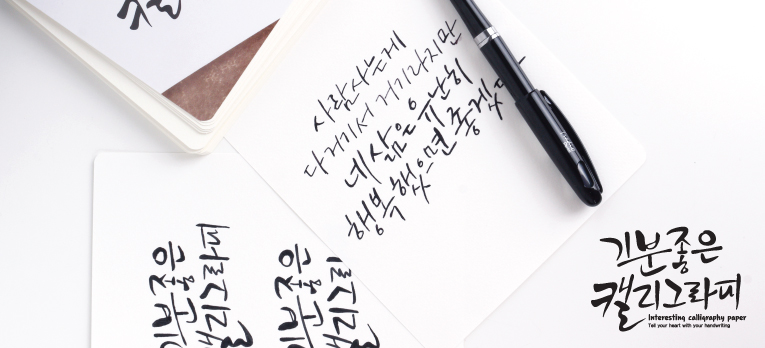 캘
사람사는게
다 거기서 거기라지만
네 삶은 유난히
행복했으면 좋겠다
기분좋은
캘리그라피
기분좋은
캘리그라피
기분좋은
캘리그라피
Interesting calligraphy paper
Tell your heart with your handwriting